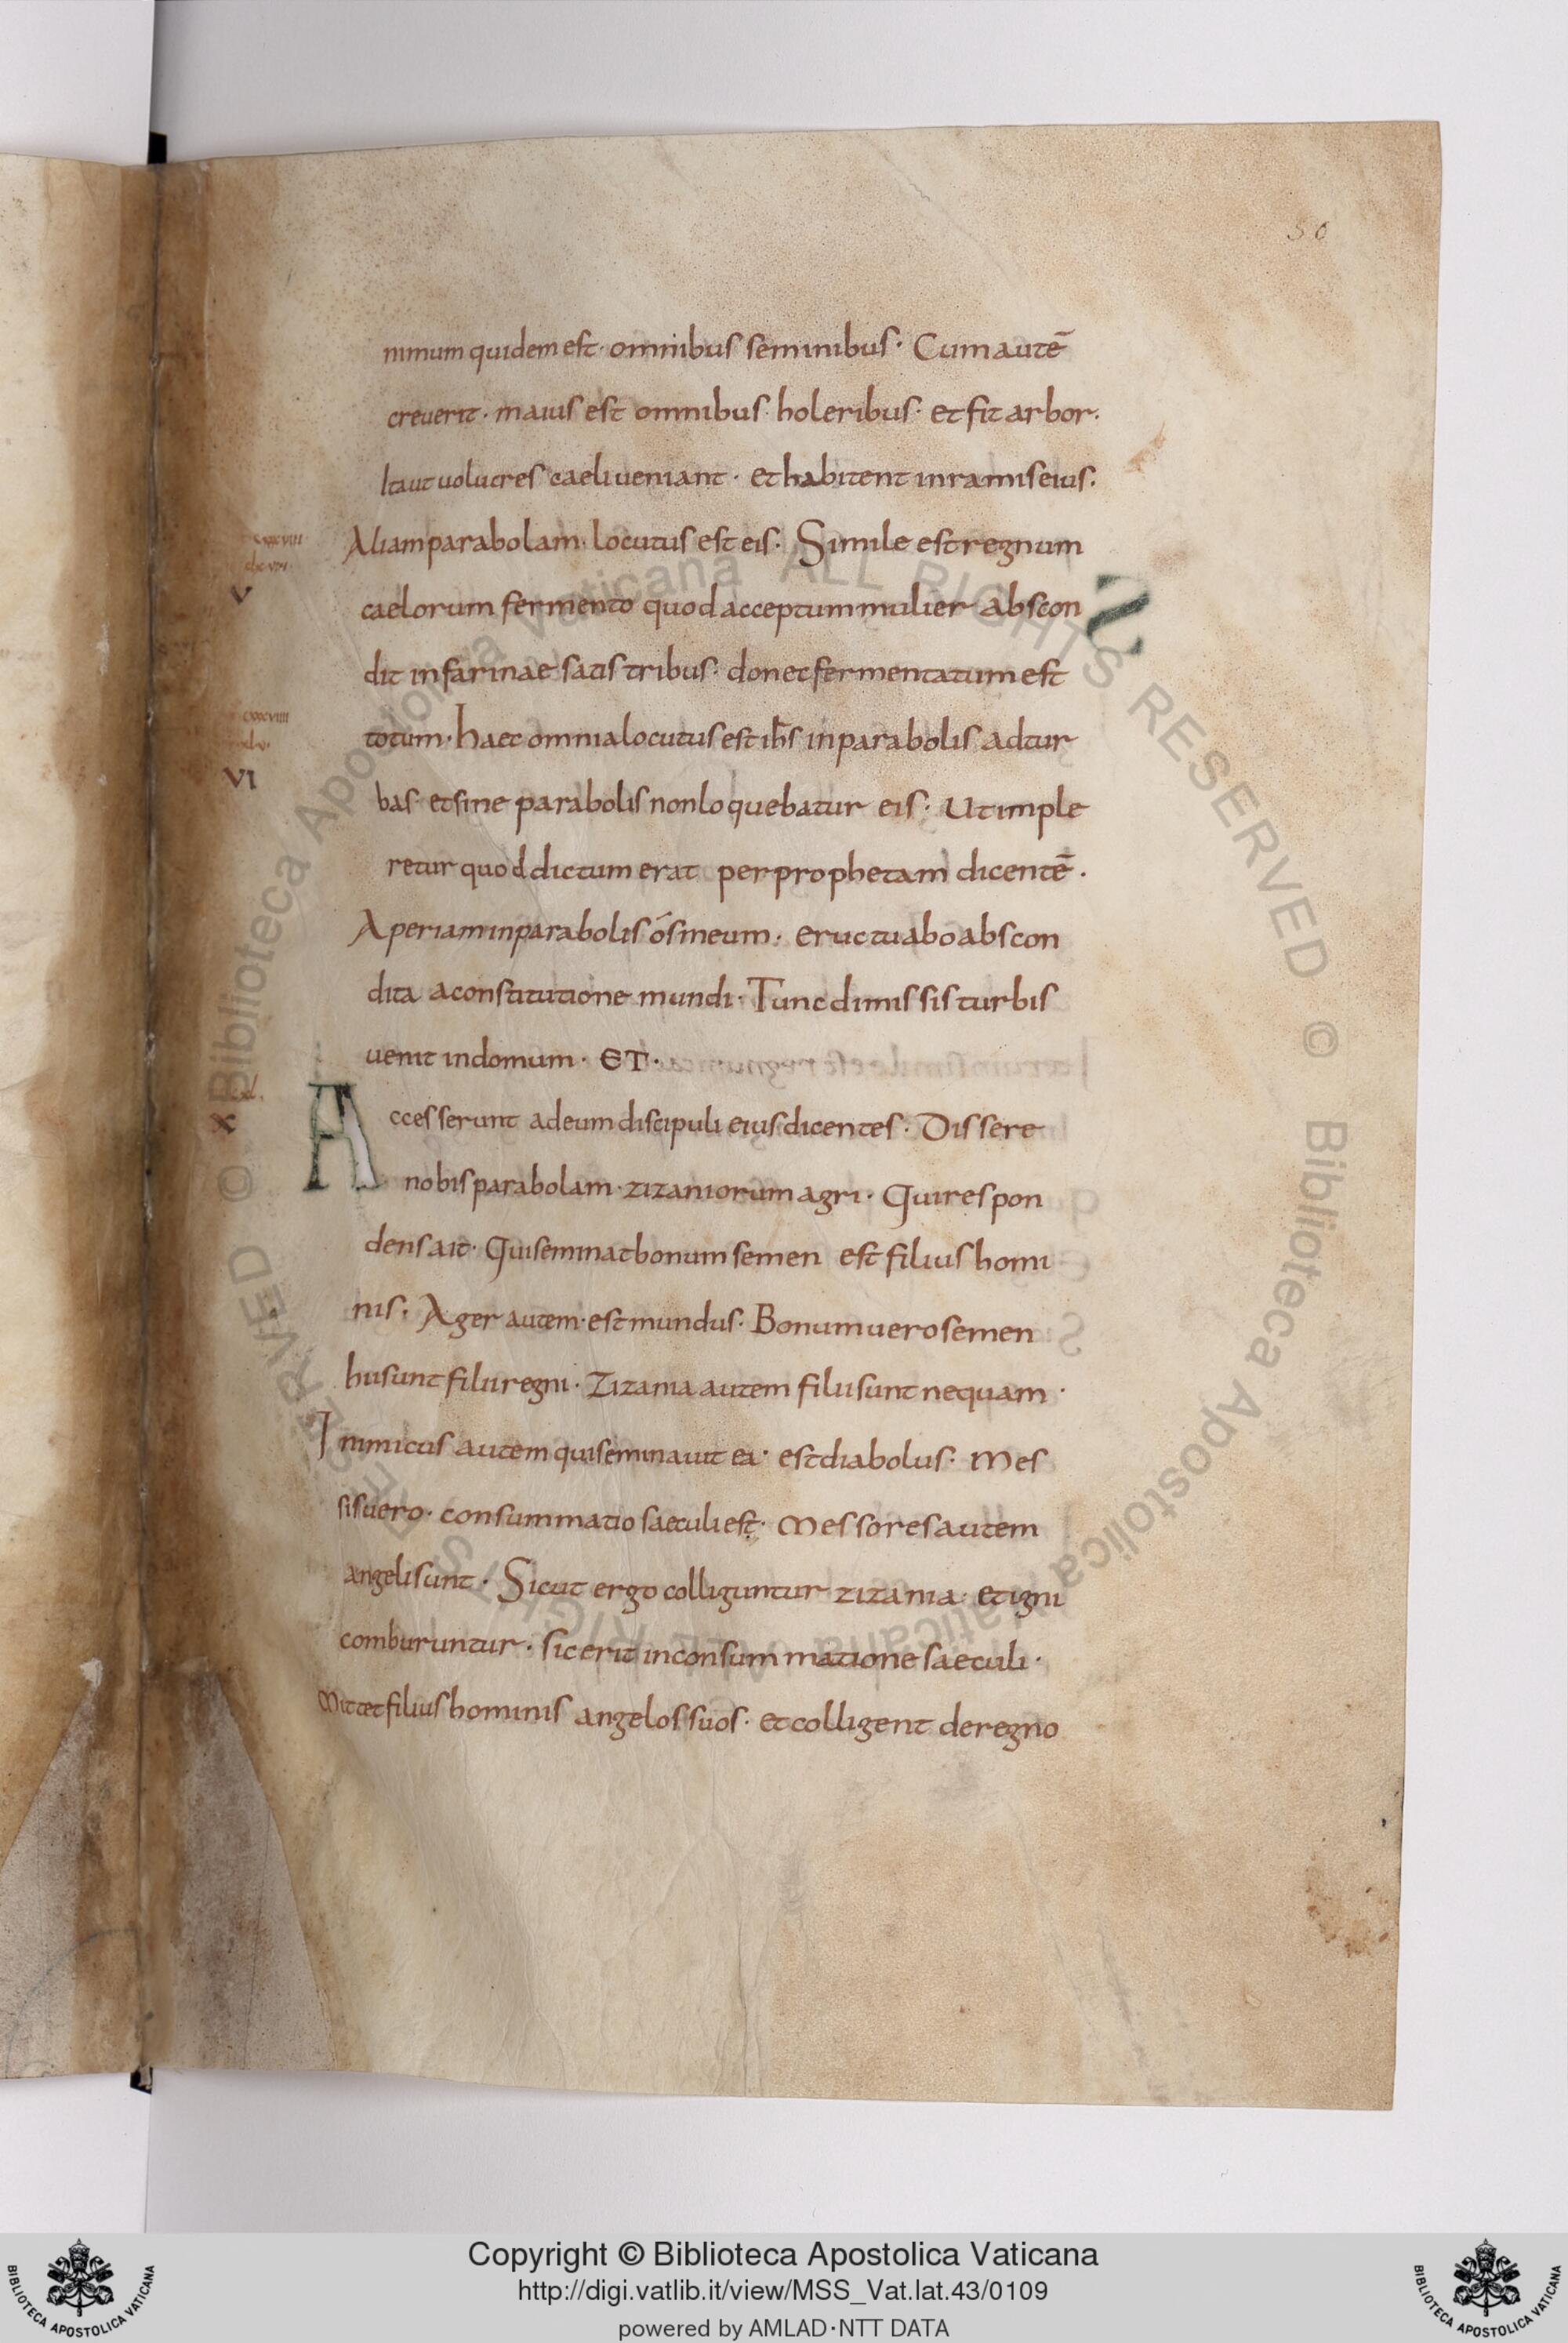 50
nimum quidem est· omnibus seminibus· Cum autē
creuerit· maius est omnibus holeribus· et fit arbor·
Ita ut uolucres caeli ueniant· et habitent in ramis eius:
Aliam parabolam· locutus est eis· Simile est regnum
V
caelorum fermento quod acceptum mulier abscon
dit in farinae satis tribus· donec fermentatum est
totum· haec omnia locutus est ih̅s in parabolis ad tur
VI
bas· et sine parabolis non loquebatur eis· Ut imple
retur quod dictum erat per prophetam dicentē·
Aperiam in parabolis ós meum· eructuabo abscon
dita a constitutione mundi· Tunc dimissis turbis
uenit in domum· ET·
X
Accesserunt ad eum discipuli eius dicentes· Dissere
nobis parabolam· zizaniorum agri· Qui respon
dens ait· Qui seminat bonum semen est filius homi
nis· Ager autem· est mundus· Bonum uero semen
hii sunt filii regni· Zizania autem filii sunt nequam·
Inimicus autem qui seminauit ea· est diabolus· Mes
sis uero· consummatio saeculi est· Messores autem
angeli sunt· Sicut ergo colliguntur zizania· et igni
comburuntur· sic erit in consummatione saeculi·
Mittet filius hominis angelos suos· et colligent de regno
© Biblioteca Apostolica Vaticana ALL RIGHTS RESERVED © Biblioteca Apostolica Vaticana ALL RIGHTS RESERVED
Copyright © Biblioteca Apostolica Vaticana
http://digi.vatlib.it/view/MSS_Vat.lat.43/0109
powered by AMLAD·NTT DATA
BIBLIOTECA APOSTOLICA VATICANA
BIBLIOTECA APOSTOLICA VATICANA